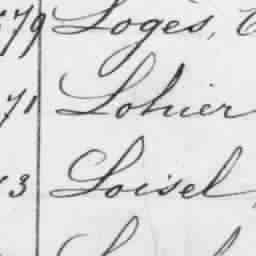 579 Loges,
71 Lohier
3 Loisel,